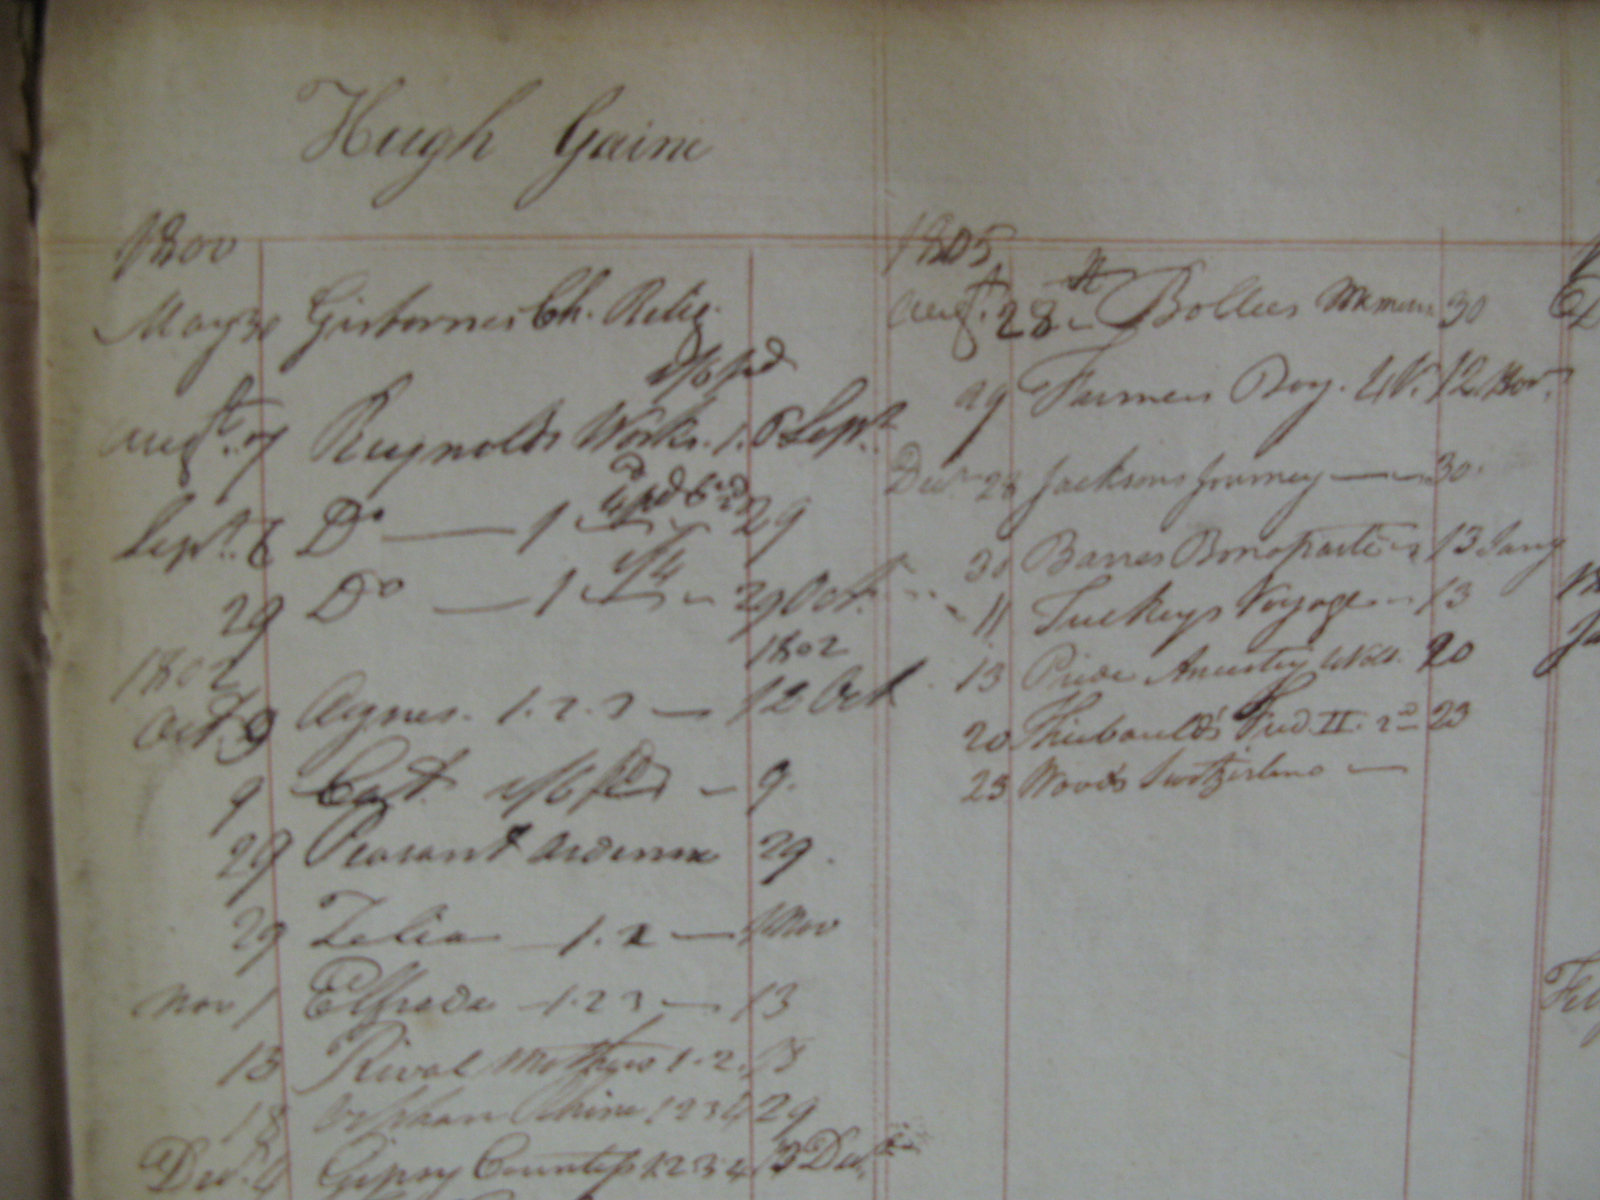 Hugh Gaine
1800
May 30 Gisbornes Ch. Relig.
2/6 pd
Augt. 7 Reynolds Works. 1. 6 Sept
Sept. 6 Do — 1 — 29
2/4
29 Do — 1 — 29 Oct.
1802 1802
Oct. 9 Agnes. 1. 2. 3 — 12 Oct
9 Cat. 2/6 pd — 9.
29 Peasant Ardenne 29.
29 Zelia — 1. 2 — 1 Nov
Nov 1 Elfreda — 1. 2 3 — 13
13 Rival Mothers 1. 2. 18
18 Orphan Rhine 1 2 3 4 29
Decr. 4 Gipsy Countess 1 2 3 4 13 Decr.
1805
Augt. 28 30
29 Farmers Boy. 12 Nov.
Decr 28 Jacksons Journey — 30.
30 Barres Bonaparte 13 Jany
11 Tuckeys Voyage — 13
13 Pride Ancestry 20
20 Thiebault's Fred. II. 2d 23
23 Woods Switzerland —